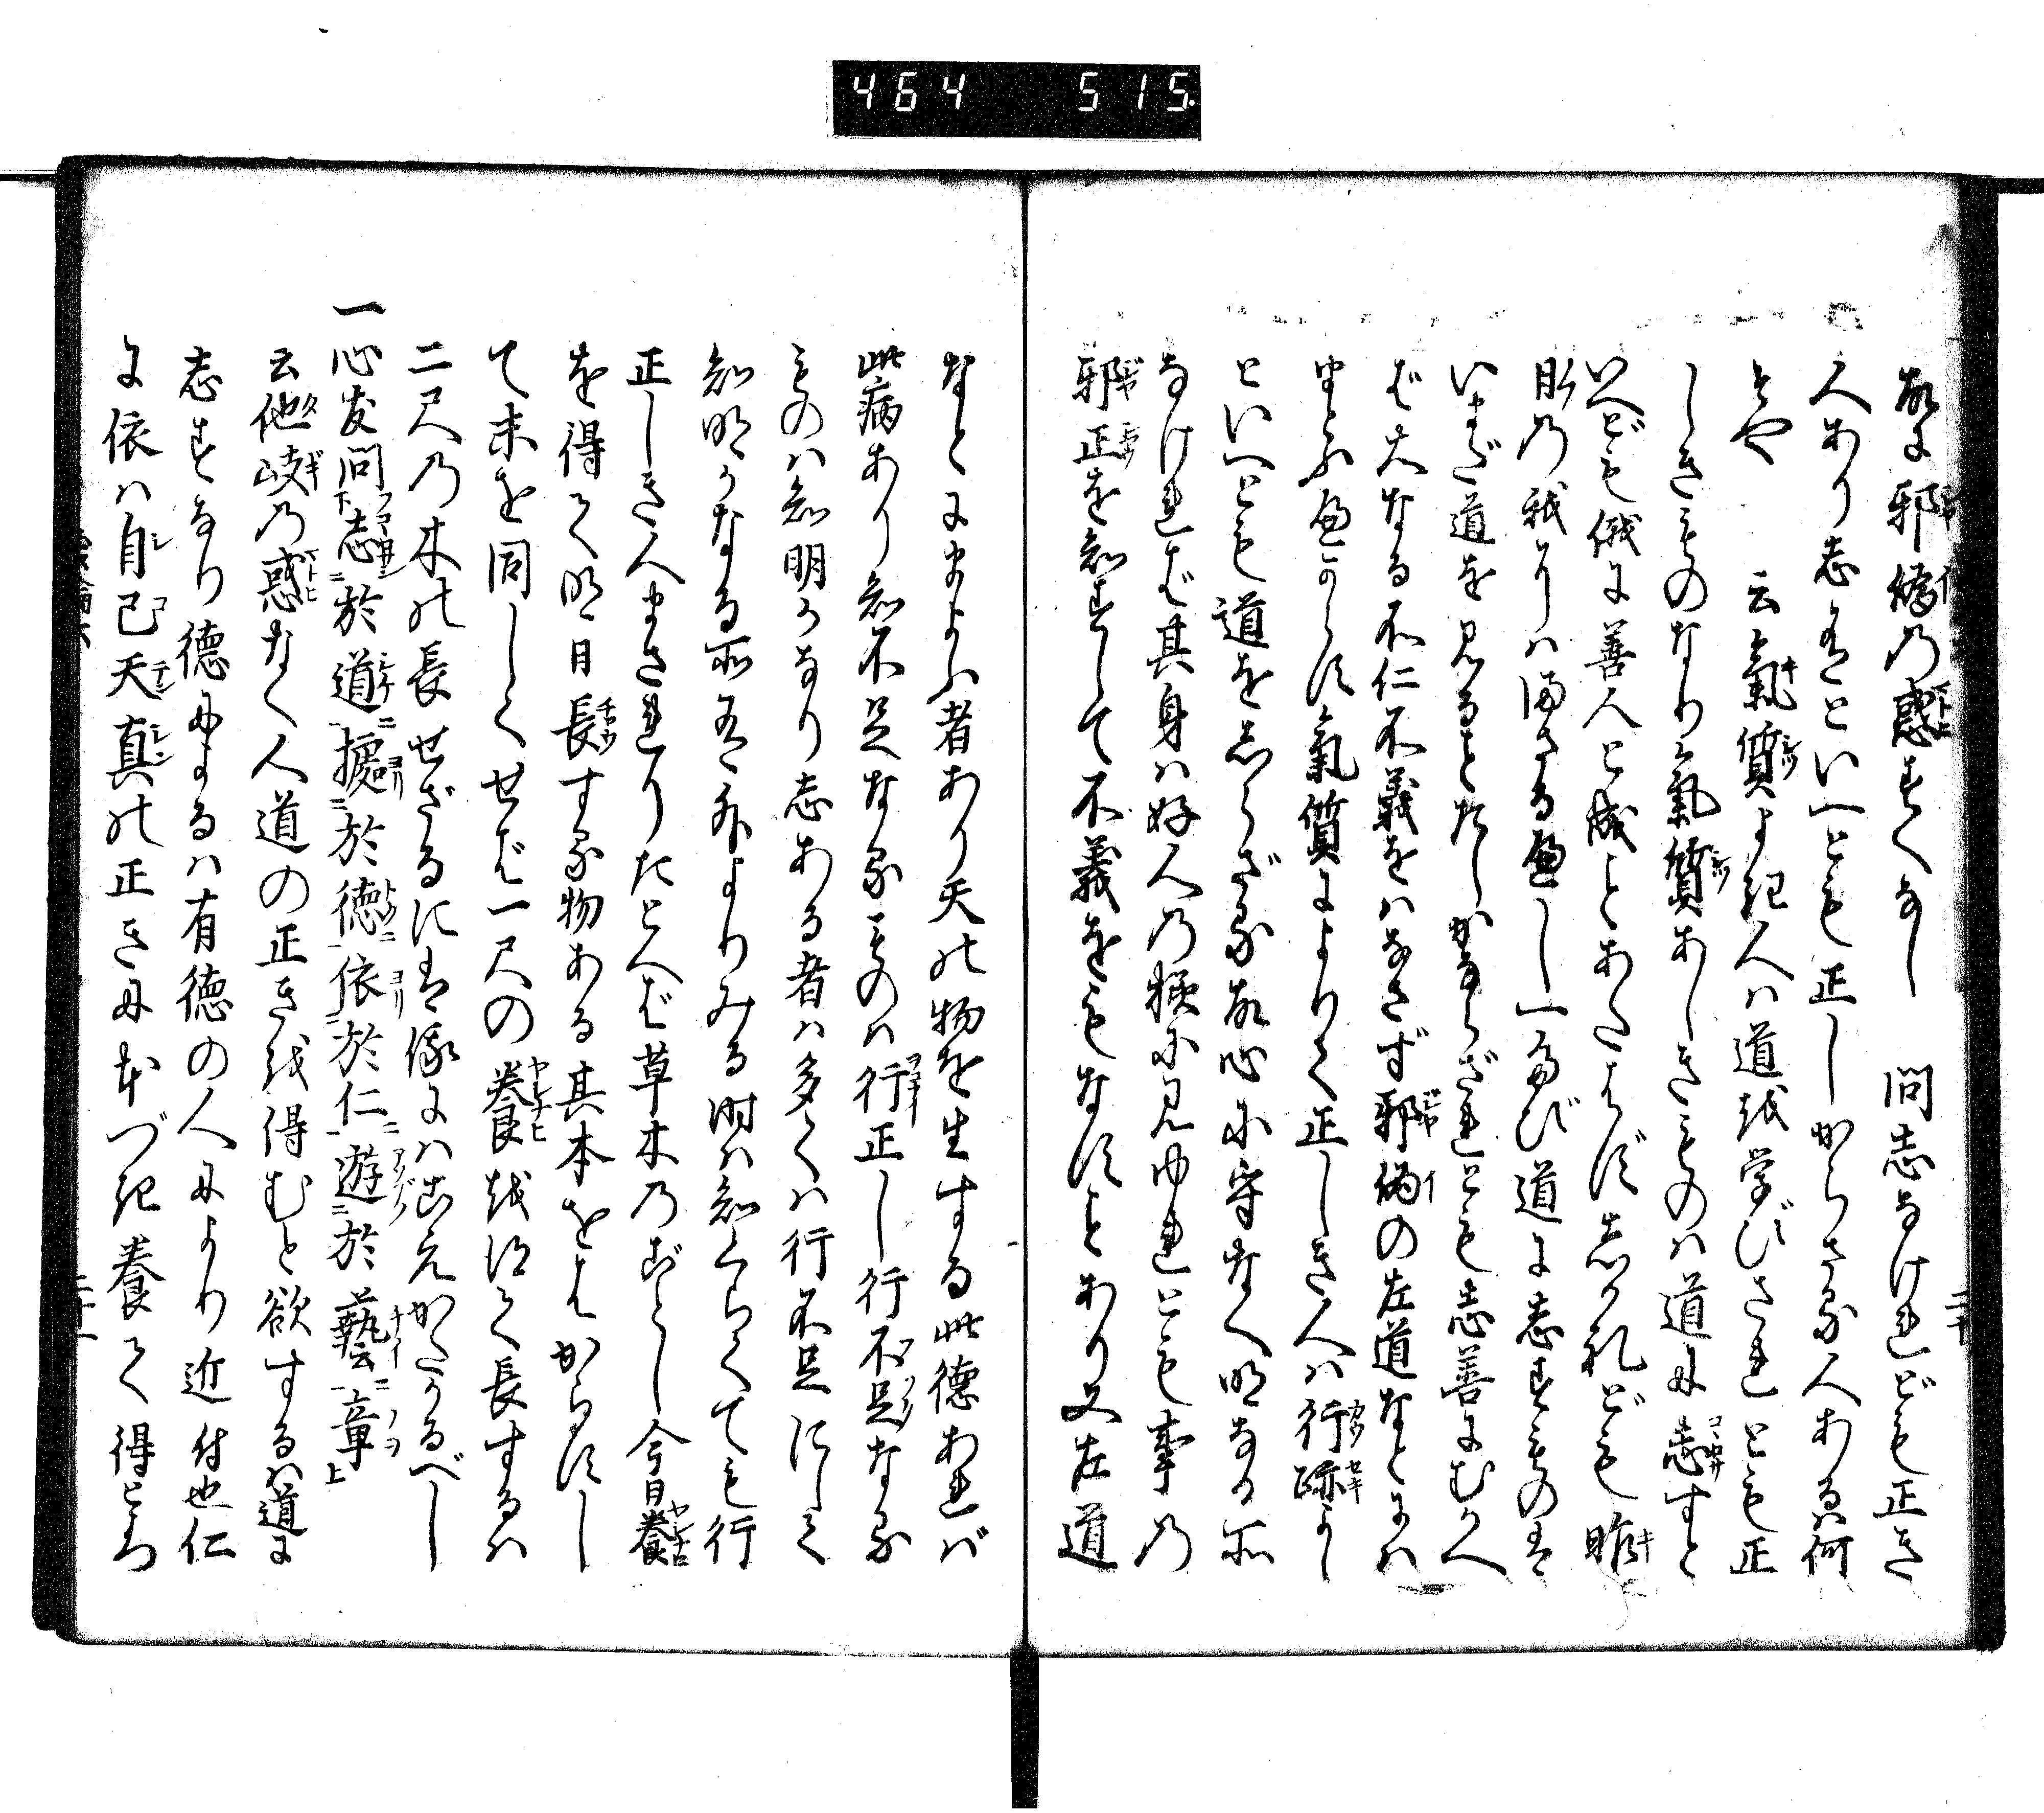 464 515.
故に邪偽の惑すくなし 問志なけれども正き
人あり志有といへども正しからさる人あるハ何
そや 云氣質よき人ハ道を学びされとも正
しきものなり氣質あしきものハ道に志すと
いへども俄に善人と成ことあたハず志かれども昨
日の我よりハまさる也し一たび道に志すものは
いまだ道を見ることたしかならざれとも志善にむかへ
ば大なる不仁不義をハなさず邪偽の左道なとにハ
まとふ也からず氣質によりて正しき人ハ行跡よし
といへとも道をしらざる故心に守なく明なる所
なければ其身ハ好人の様に見ゆれとも事の
邪正を知すして不義をもなすことあり又左道
なとにまよふ者あり天の物を生する此徳あれバ
此病あり知不足なるものハ行正し行不足なる
ものハ知明かなり志ある者ハ多くハ行不足にして
知明かなる所有外よりみる時ハ知くらくても行
正しき人まされりたとへば草木のごとし今日養
を得て明日長する物ある其本をはからずし
て末を同しくせば一尺の養を得て長するハ
二尺の木の長せざるには俄にハこえかたかるべし
一心友問志於道據於德依於仁遊於藝章
云他岐の惑なく人道の正きを得むと欲するハ道に
志すなり徳によるハ有徳の人により近付也仁
に依ハ自己天真の正きにもとづき養て得ところ